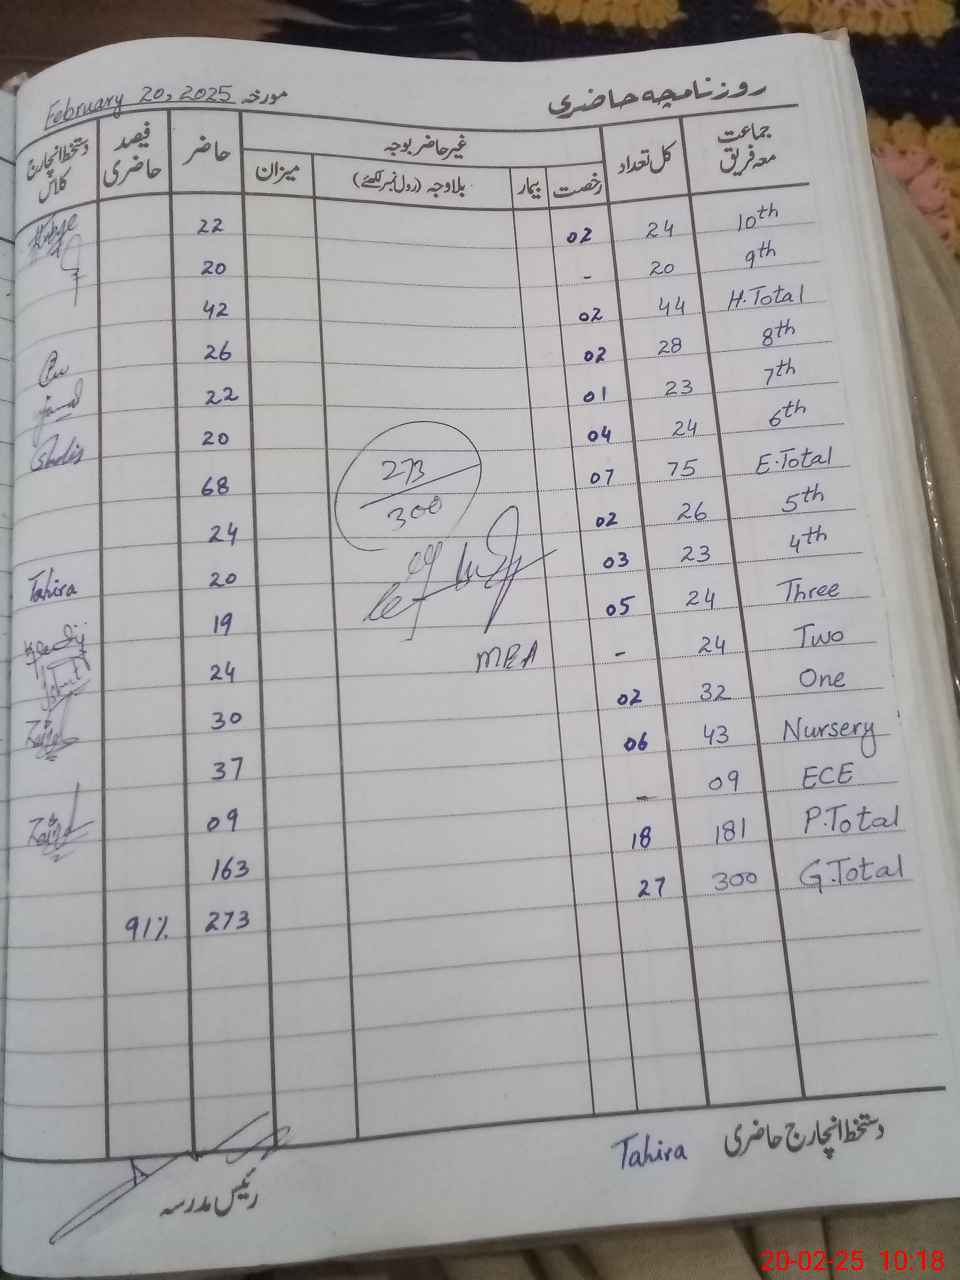 روزنامچہ حاضری مورخہ February 20, 2025
جماعت معہ فریق کل تعداد غیر حاضر بوجہ حاضر فیصد حاضری دستخط انچارج کلاس
رخصت بیمار بلاوجہ (رول نمبر لکھئے) میزان
10th 24 02 22
9th 20 - 20
H.Total 44 02 42
8th 28 02 26
7th 23 01 22
6th 24 04 20
E.Total 75 07 68
5th 26 02 24
4th 23 03 20 Tahira
Three 24 05 19
Two 24 - 24
One 32 02 30
Nursery 43 06 37
ECE 09 - 09
P.Total 181 18 163
G.Total 300 27 273 91%
273
300
MEA
دستخط انچارج حاضری Tahira
رئیس مدرسہ
20-02-25 10:18